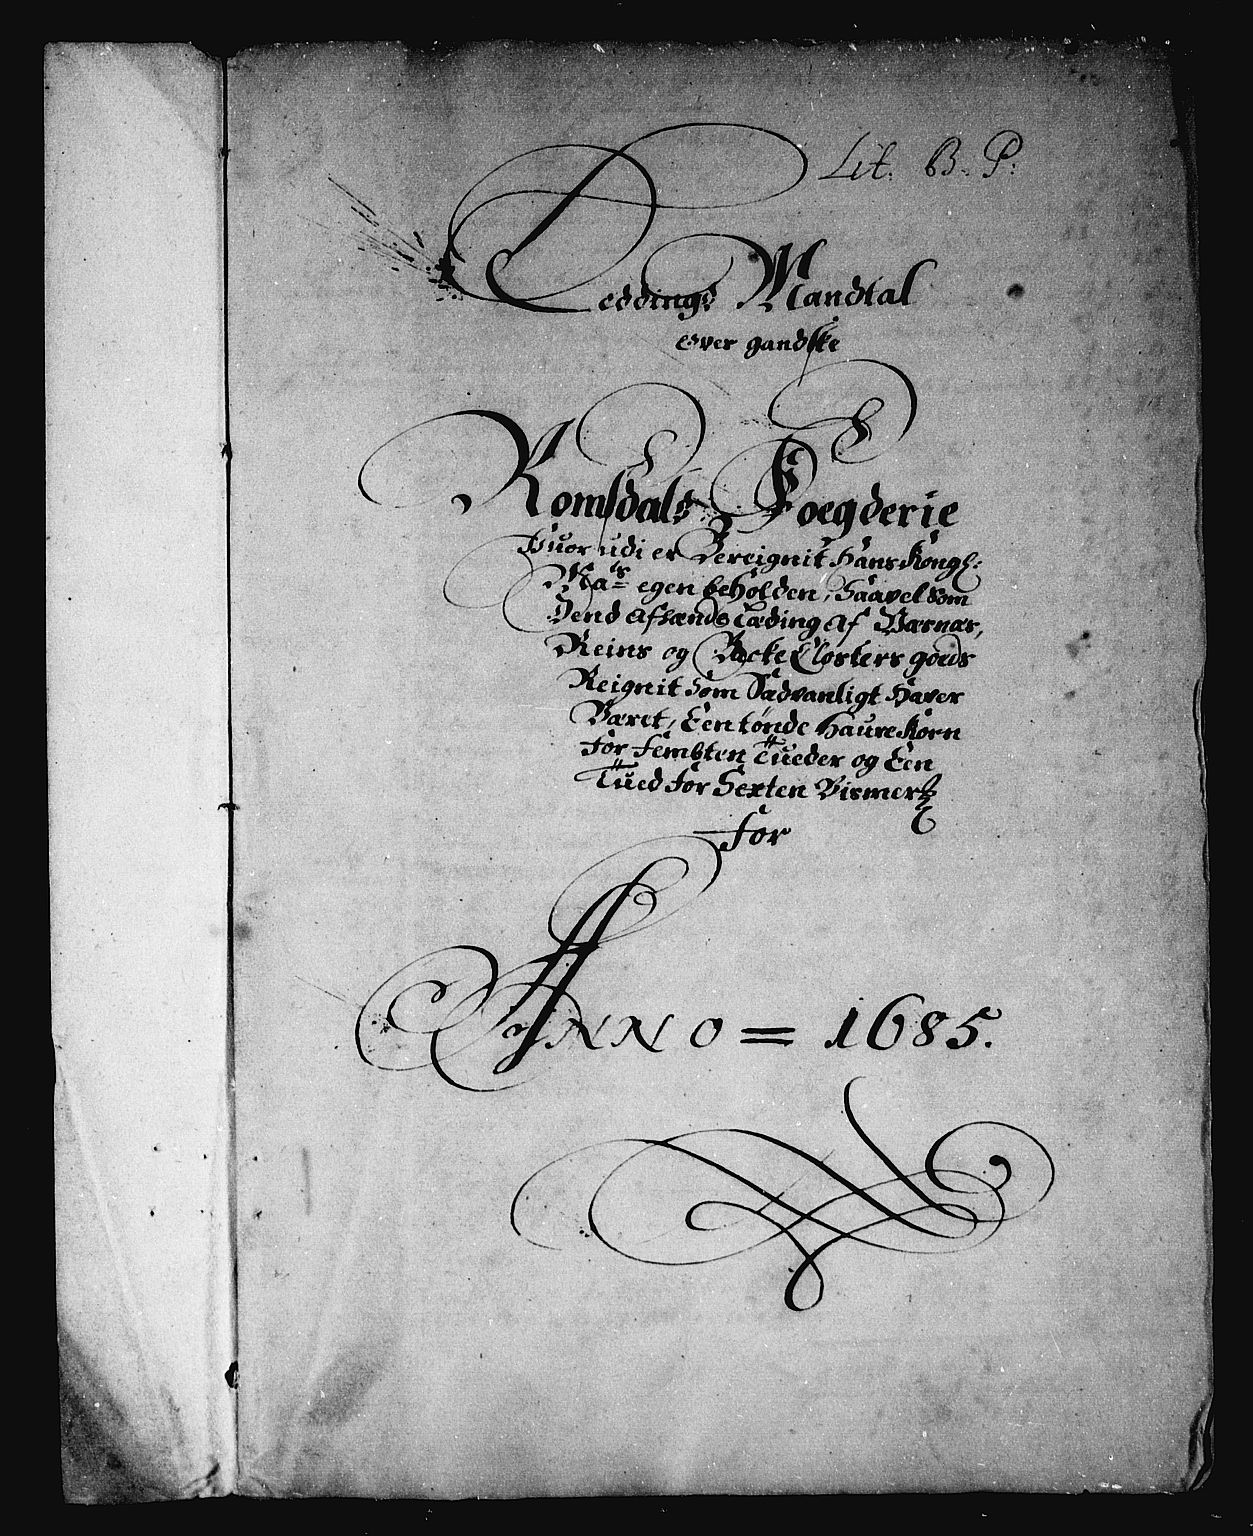 Lit. B. P:
Leddings Mandtal
over gandske
Romsdals Foegderie
Huor udi er Bereignit Hans Kongl:
Ma:ts egen beholden, Saavel Som
Dend afsænds Læding af Bærnær,
Reins og Backe Closters goeds
Reignit Som Sædvanligt Haver
Været, Een tønde Haure Korn
for fembten Tueder og Een
Tued for Sexten Bismer
for
ANNO = 1685.